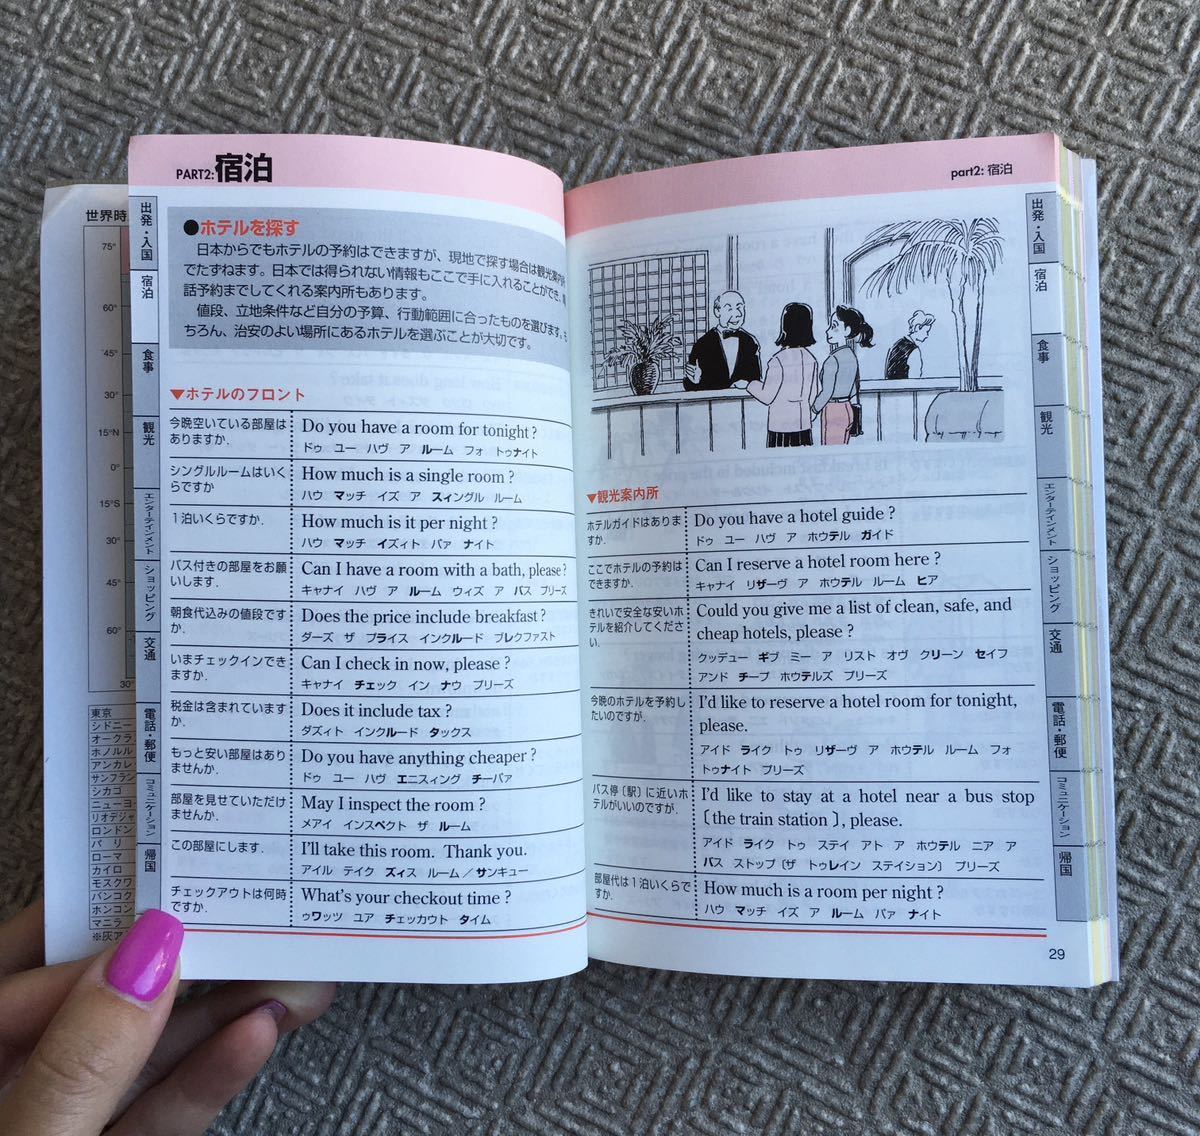 世界時
75°
60°
45°
30°
15°N
0°
15°S
30°
45°
60°
30°
東京
シドニー
オークラ
ホノルル
アンカレ
サンフラン
シカゴ
ニューヨー
リオデジャ
ロンドン
パリ
ローマ
カイロ
モスクワ
バンコク
ホンコン
マニラ
※灰ア
出発・入国
宿泊
食事
観光
エンターテインメント
ショッピング
交通
電話・郵便
コミュニケーション
帰国
PART2:宿泊
●ホテルを探す
日本からでもホテルの予約はできますが、現地で探す場合は観光案内所
でたずねます。日本では得られない情報もここで手に入れることができ、電
話予約までしてくれる案内所もあります。
値段、立地条件など自分の予算、行動範囲に合ったものを選びます。も
ちろん、治安のよい場所にあるホテルを選ぶことが大切です。
▼ホテルのフロント
今晩空いている部屋は
ありますか.
Do you have a room for tonight?
ドゥ ユー ハヴ ア ルーム フォ トゥナイト
シングルルームはいく
らですか
How much is a single room?
ハウ マッチ イズ ア スィングル ルーム
1泊いくらですか.
How much is it per night?
ハウ マッチ イズィト パァ ナイト
バス付きの部屋をお願
いします.
Can I have a room with a bath, please?
キャナイ ハヴ ア ルーム ウィズ ア バス プリーズ
朝食代込みの値段です
か.
Does the price include breakfast?
ダーズ ザ プライス インクルード ブレクファスト
いまチェックインでき
ますか.
Can I check in now, please?
キャナイ チェック イン ナウ プリーズ
税金は含まれています
か.
Does it include tax?
ダズィト インクルード タックス
もっと安い部屋はあり
ませんか.
Do you have anything cheaper?
ドゥ ユー ハヴ エニスィング チーパァ
部屋を見せていただけ
ませんか.
May I inspect the room?
メアイ インスペクト ザ ルーム
この部屋にします.
I'll take this room. Thank you.
アイル テイク ズィス ルーム／サンキュー
チェックアウトは何時
ですか.
What's your checkout time?
ゥワッツ ユア チェッカウト タイム
part2: 宿泊
▼観光案内所
ホテルガイドはありま
すか.
Do you have a hotel guide?
ドゥ ユー ハヴ ア ホウテル ガイド
ここでホテルの予約は
できますか.
Can I reserve a hotel room here?
キャナイ リザーヴ ア ホウテル ルーム ヒア
きれいで安全な安いホ
テルを紹介してくださ
い.
Could you give me a list of clean, safe, and
cheap hotels, please?
クッデュー ギブ ミー ア リスト オヴ クリーン セイフ
アンド チープ ホウテルズ プリーズ
今晩のホテルを予約し
たいのですが.
I'd like to reserve a hotel room for tonight,
please.
アイド ライク トゥ リザーヴ ア ホウテル ルーム フォ
トゥナイト プリーズ
バス停〔駅〕に近いホ
テルがいいのですが.
I'd like to stay at a hotel near a bus stop
〔the train station〕, please.
アイド ライク トゥ ステイ アト ア ホウテル ニア ア
バス ストップ〔ザ トゥレイン ステイション〕プリーズ
部屋代は1泊いくらで
すか.
How much is a room per night?
ハウ マッチ イズ ア ルーム パァ ナイト
29
出発・入国
宿泊
食事
観光
エンターテインメント
ショッピング
交通
電話・郵便
コミュニケーション
帰国